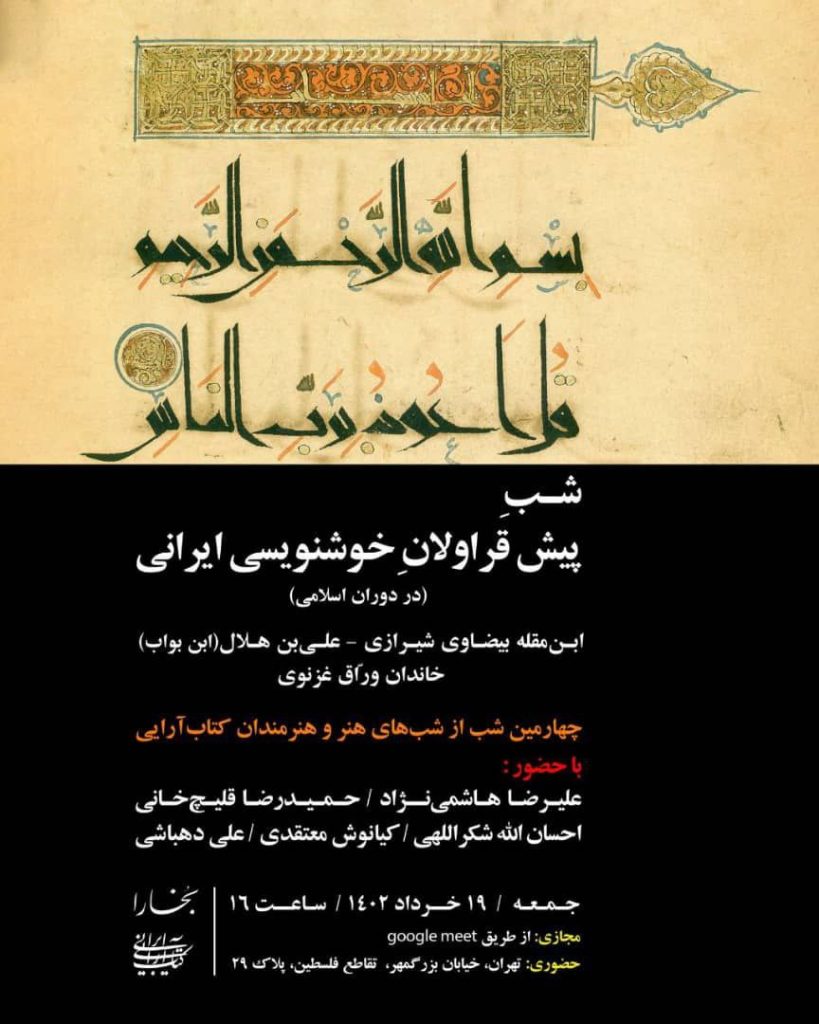 بسم الله الرحمن الرحيم
قل اعوذ برب الناس
شبِ
پیش قراولانِ خوشنویسی ایرانی
(در دوران اسلامی)
ابن‌مقله بیضاوی شیرازی - علی‌بن هلال(ابن بواب)
خاندان ورّاق غزنوی
چهارمین شب از شب‌های هنر و هنرمندان کتاب‌آرایی
با حضور:
علیرضا هاشمی‌نژاد / حمیدرضا قلیچ‌خانی
احسان الله شکراللهی / کیانوش معتقدی / علی دهباشی
جمعه / ۱۹ خرداد ۱۴۰۲ / ساعت ۱۶
مجازی: از طریق google meet
حضوری: تهران، خیابان بزرگمهر، تقاطع فلسطین، پلاک ۲۹
بخارا